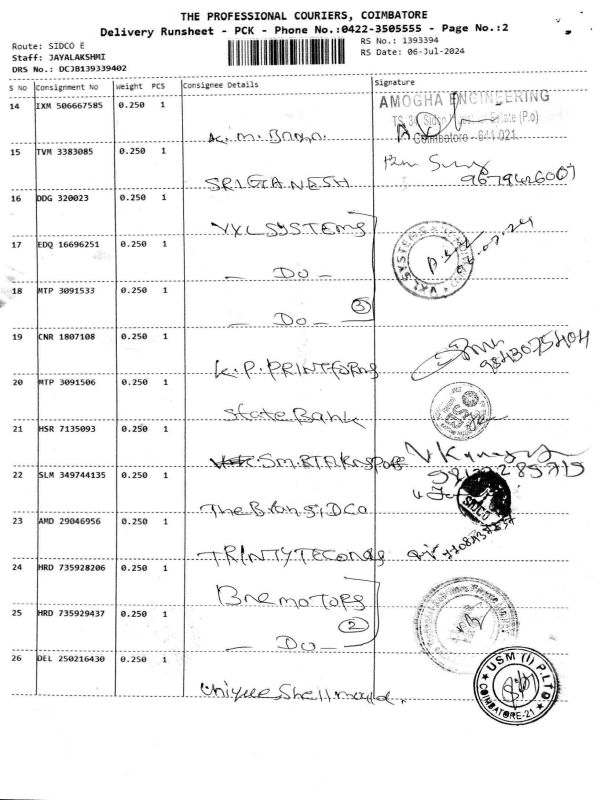 THE PROFESSIONAL COURIERS, COIMBATORE
Delivery Runsheet - PCK - Phone No.:0422-3505555 - Page No.:2
Route: SIDCO E
RS No.: 1393394
Staff: JAYALAKSHMI
RS Date: 06-Jul-2024
DRS No.: DCJB139339402
S No Consignment No Weight PCS Consignee Details Signature
14 IXM 506667585 0.250 1
AMOGHA ENGINEERING
Estate (P.o)
Coimbatore - 641 021
15 TVM 3383085 0.250 1
SRI GANESH
16 DDG 320023 0.250 1
VXL SYSTEMS
17 EDQ 16696251 0.250 1
- DO -
18 MTP 3091533 0.250 1
3
- DO -
19 CNR 1807108 0.250 1
K.P. PRINTFORMS
9843075404
20 MTP 3091506 0.250 1
State Bank
21 HSR 7135093 0.250 1
22 SLM 349744135 0.250 1
SIDCO
23 AMD 29046956 0.250 1
24 HRD 735928206 0.250 1
25 HRD 735929437 0.250 1
2
- DO -
26 DEL 250216430 0.250 1
Unique Shell mould
USM (I) P. LTD
COIMBATORE-21